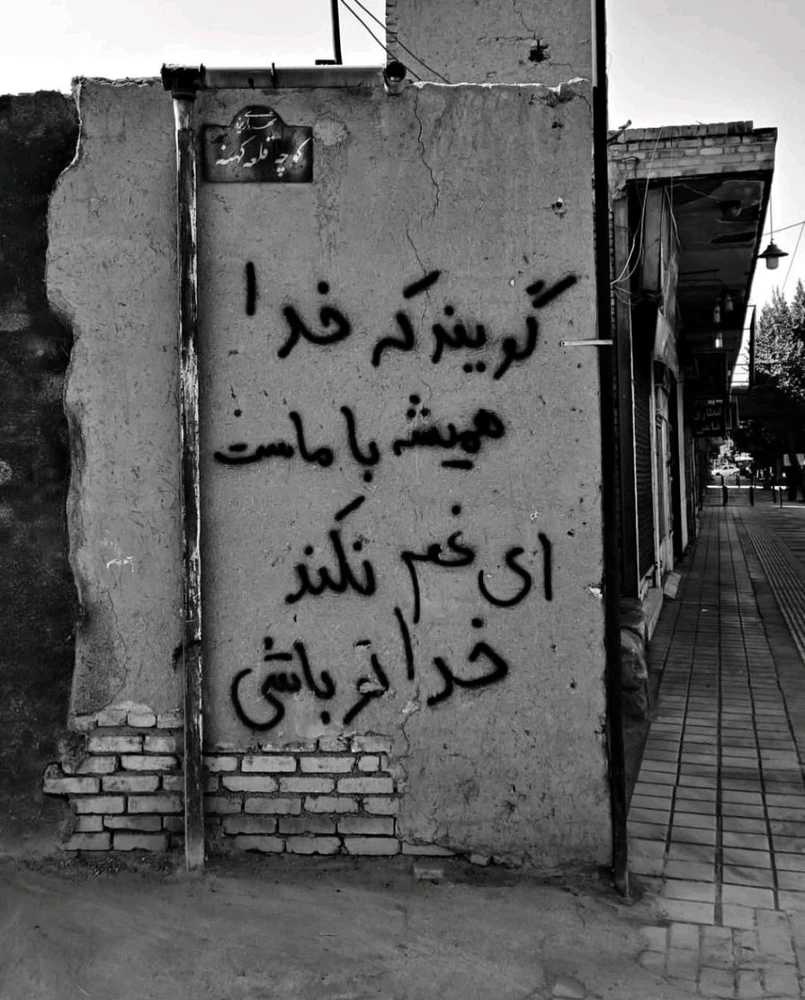 کوچه قلعه کهنه
گویند که خدا
همیشه با ماست
ای غم نکند
خدا تو باشی